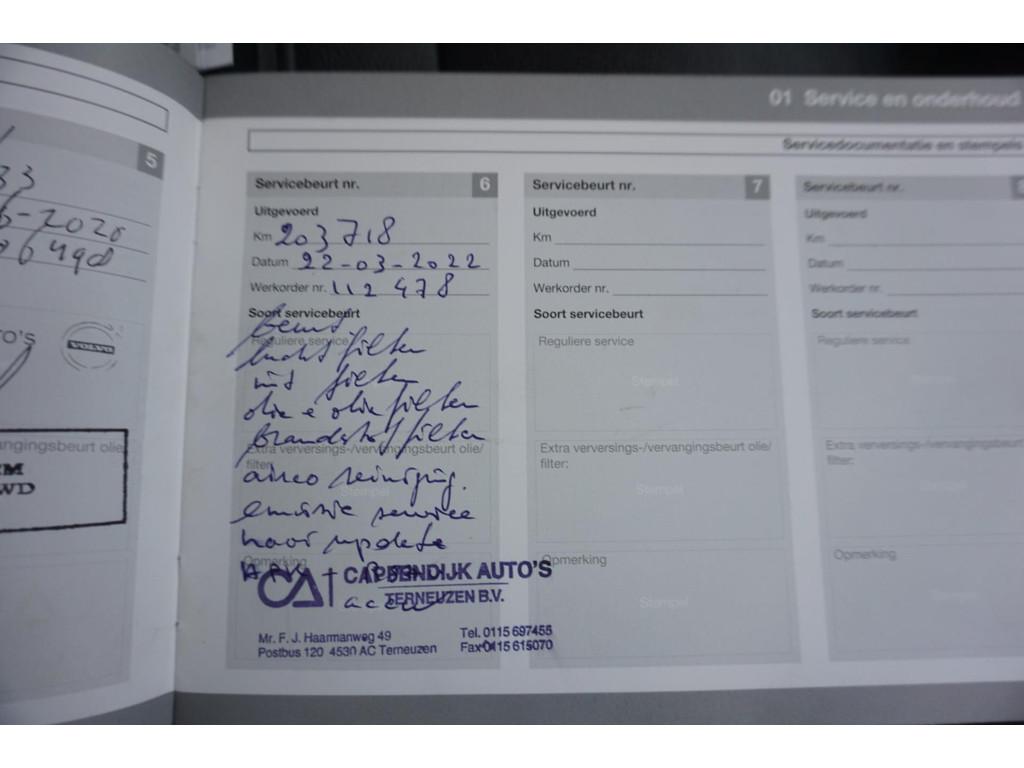 01 Service en onderhoud
Servicedocumentatie en stempels
5
33
6-2020
VOLVO
TO'S
vangingsbeurt olie/
EM
WD
Servicebeurt nr. 6
Uitgevoerd
Km 203 718
Datum 22-03-2022
Werkorder nr. 112 478
Soort servicebeurt
Reguliere service
beurt
lucht filter
int filter
olie e olie filter
brandstof filter
Extra verversings-/vervangingsbeurt olie/
filter:
airco reiniging.
Stempel
emissie service
update
Opmerking
CAPPENDIJK AUTO'S
TERNEUZEN B.V.
accu
Mr. F. J. Haarmanweg 49
Postbus 120 4530 AC Terneuzen
Tel. 0115 697455
Fax 0115 615070
Servicebeurt nr. 7
Uitgevoerd
Km
Datum
Werkorder nr.
Soort servicebeurt
Reguliere service
Stempel
Extra verversings-/vervangingsbeurt olie/
filter:
Stempel
Opmerking
Stempel
Servicebeurt nr. 8
Uitgevoerd
Km
Datum
Werkorder nr.
Soort servicebeurt
Reguliere service
Stempel
Extra verversings-/vervangingsbeurt
filter:
Stempel
Opmerking
Stempel